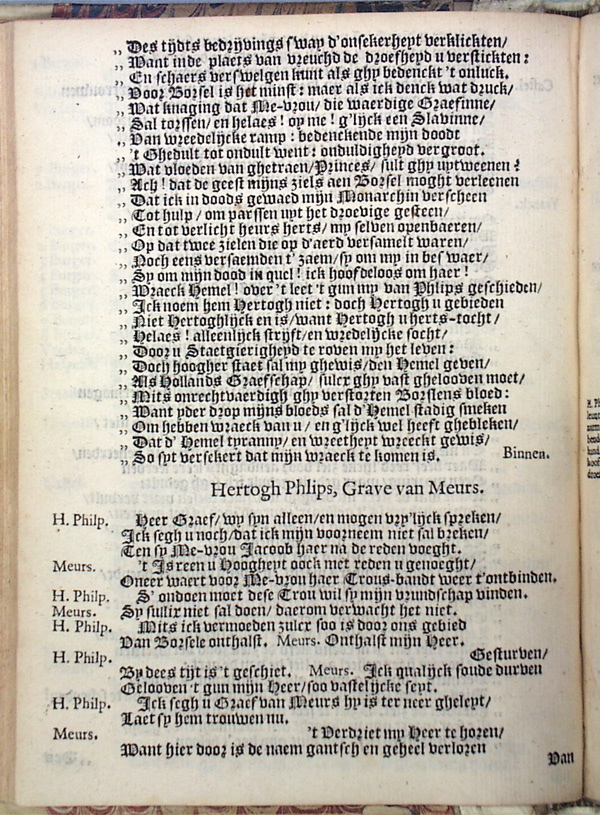 „ Des tijdts bedrijvings swap d'onsekerheyt verklickten/
„ Want inde plaets van vreuchd de droefheyd u verstickten:
„ En schaers verswelgen kunt als ghy bedenckt 't onluck.
„ Voor Borsel is het minst: maer als ick denck wat druck/
„ Wat knaging dat Me-vrou/ die waerdige Graefinne/
„ Sal torssen/ en helaes! op me! g'lijck een Slavinne/
„ Van wreedelijcke ramp: bedenckende mijn doodt
„ 't Ghedult tot ondult went: onduldigheyd vergroot.
„ Wat vloeden van ghetraen/ Princes/ sult ghy uytweenen?
„ Ach! dat de geest mijns ziels aen Borsel moght verleenen
„ Dat ick in doods gewaed mijn Monarchin verscheen
„ Tot hulp/ om parssen uyt het droevige gesteen/
„ En tot verlicht heurs herts/ my selven openbaeren/
„ Op dat twee zielen die op d'aerd versamelt waren/
„ Noch eens versaemden t'zaem/ sy om my in bes waer/
„ Sy om mijn dood in quel! ick hoofdeloos om haer!
„ Wraeck Hemel! over 't leet 't gun my van Phlips geschieden/
„ Ick noem hem Hertogh niet: doch Hertogh u gebieden
„ Niet Hertoghlijck en is/ want Hertogh u herts-tocht/
„ Helaes! alleenlijck strijft/ en wredelijcke socht/
„ Door u Staetgierigheyd te roven my het leven:
„ Doch hoogher staet sal my ghewis/ den Hemel geven/
„ Als Hollands Graefschap/ sulcx ghy vast ghelooven moet/
„ Mits onrechtvaerdigh ghy verstorten Borslens bloed:
„ Want yder drop mijns bloeds sal d'Hemel stadig smeken
„ Om hebben wraeck van u/ en g'lijck wel heeft ghebleken/
„ Dat d' Hemel tyranny/ en wreetheyt wreeckt gewis/
„ So syt versekert dat mijn wraeck te komen is. Binnen.
Hertogh Phlips, Grave van Meurs.
H. Philp. Heer Graef/ wy syn alleen/ en mogen vry'lijck spreken/
Ick segh u noch/ dat ick mijn voorneem niet sal breken/
Ten sy Me-vrou Jacoob haer na de reden voeght.
Meurs. 't Is reen u Hoogheyt oock met reden u genoeght/
Oneer waert voor Me-vrou haer Trous-bandt weer t'ontbinden.
H. Philp. S' ondoen moet dese Trou wil sy mijn vrundschap vinden.
Meurs. Sy sullix niet sal doen/ daerom verwacht het niet.
H. Philp. Mits ick vermoeden zulcx soo is door ons gebied
Van Borsele onthalst. Meurs. Onthalst mijn Heer.
H. Philp. Gesturven/
By dees tijt is 't geschiet. Meurs. Ick qualijck soude durven
Gelooven 't gun mijn Heer/ soo vastelijcke seyt.
H. Philp. Ick segh u Graef van Meurs hy is ter neer gheleyt/
Laet sy hem trouwen nu.
Meurs. 't Verdriet my Heer te horen/
Want hier door is de naem gantsch en geheel verloren
Van